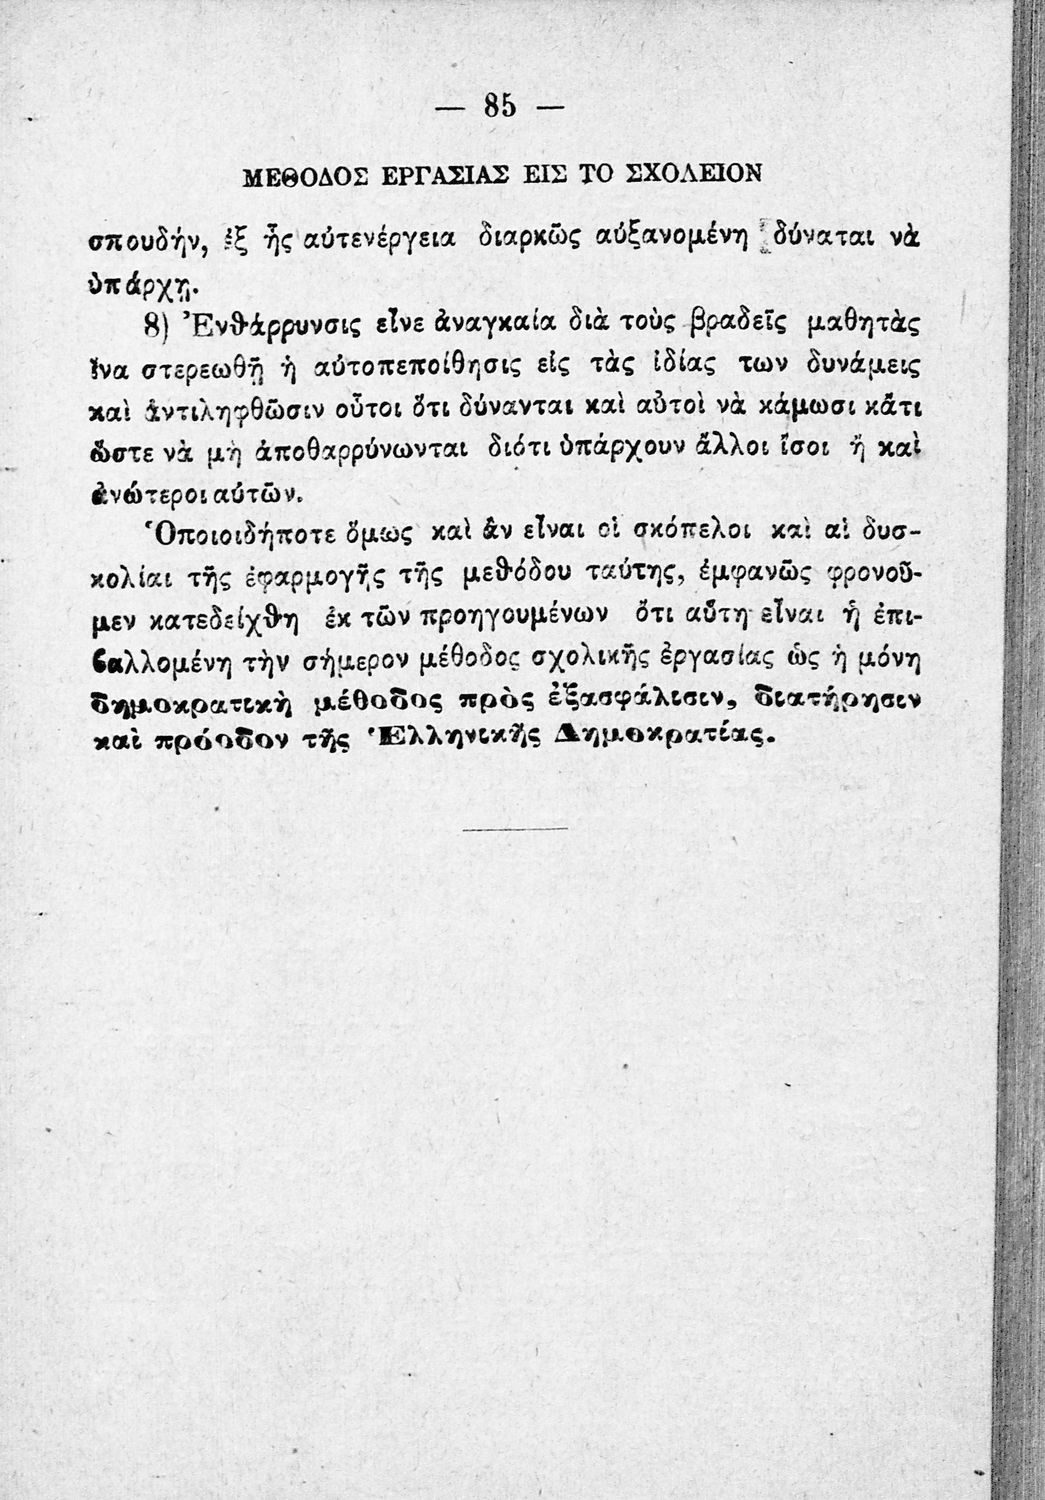 — 85 —
ΜΕΘΟΔΟΣ ΕΡΓΑΣΙΑΣ ΕΙΣ ΤΟ ΣΧΟΛΕΙΟΝ
σπουδήν, ἐξ ἧς αὐτενέργεια διαρκῶς αὐξανομένη δύναται νὰ
ὑπάρχῃ.
8) Ἐνθάρρυνσις εἶνε ἀναγκαία διὰ τοὺς βραδεῖς μαθητὰς
ἵνα στερεωθῇ ἡ αὐτοπεποίθησις εἰς τὰς ἰδίας των δυνάμεις
καὶ ἀντιληφθῶσιν οὗτοι ὅτι δύνανται καὶ αὐτοὶ νὰ κάμωσι κάτι
ὥστε νὰ μὴ ἀποθαρρύνωνται διότι ὑπάρχουν ἄλλοι ἴσοι ἤ καὶ
ἀνώτεροι αὐτῶν.
Ὁποιοιδήποτε ὅμως καὶ ἂν εἶναι οἱ σκόπελοι καὶ αἱ δυσ-
κολίαι τῆς ἐφαρμογῆς τῆς μεθόδου ταύτης, ἐμφανῶς φρονοῦ-
μεν κατεδείχθη ἐκ τῶν προηγουμένων ὅτι αὕτη εἶναι ἡ ἐπι-
βαλλομένη τὴν σήμερον μέθοδος σχολικῆς ἐργασίας ὡς ἡ μόνη
δημοκρατικὴ μέθοδος πρὸς ἐξασφάλισιν, διατήρησιν
καὶ πρόοδον τῆς Ἑλληνικῆς Δημοκρατίας.